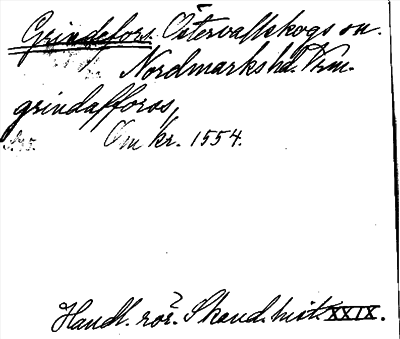 Grindefors. Östervallskogs sn.
Nordmarks hd. Vrm.
grindafforos,
Om kr. 1554.
Handl. rör. Skand. hist. XXIX.